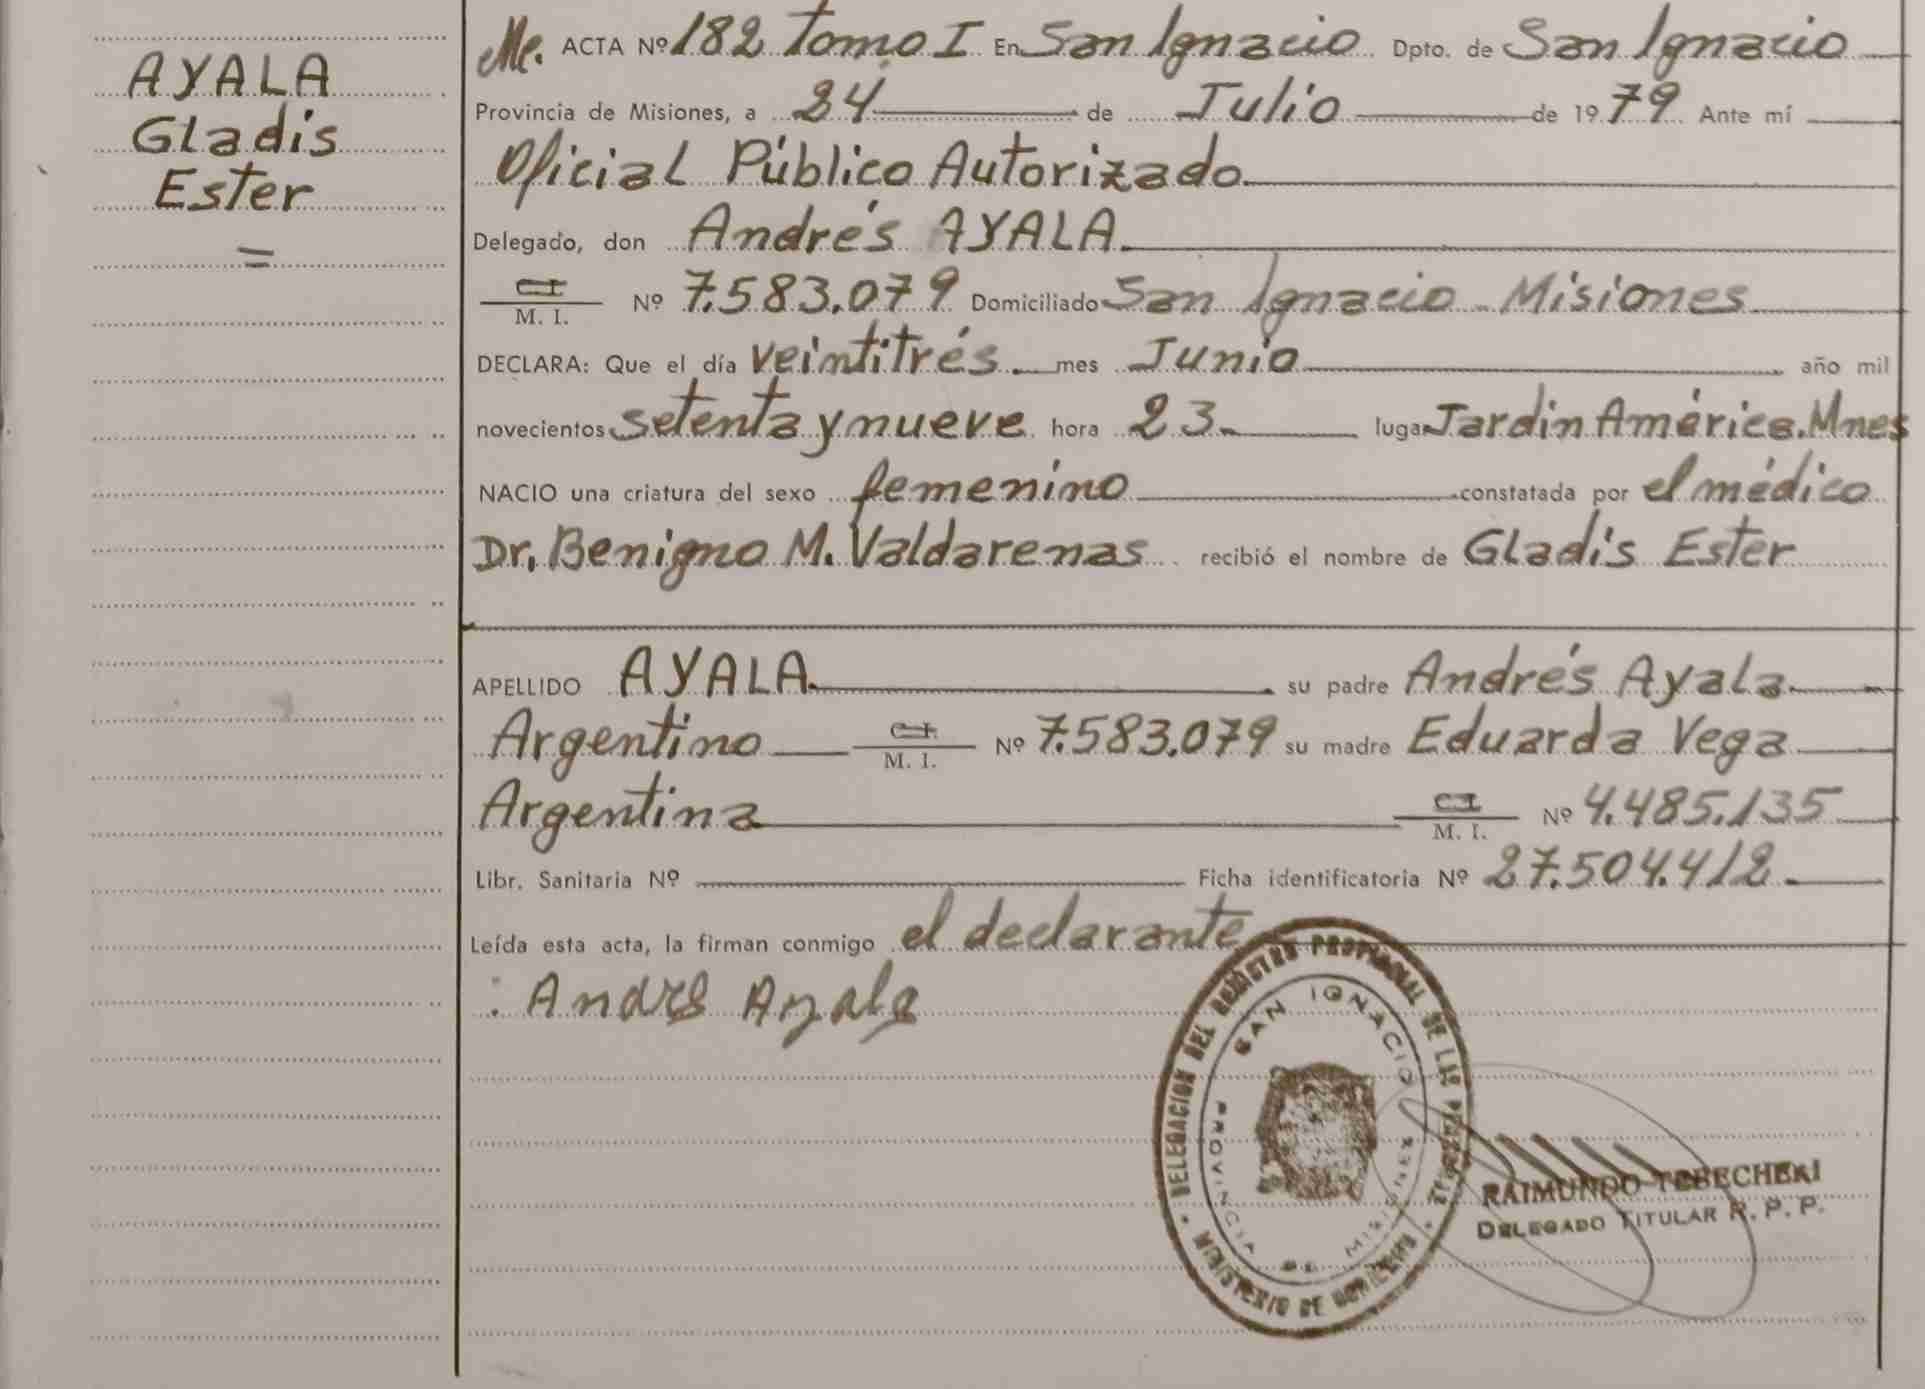 AYALA
Gladis
Ester
=
Me. ACTA Nº 182 Tomo I En San Ignacio Dpto. de San Ignacio
Provincia de Misiones, a 24 de Julio de 1979 Ante mí
Oficial Público Autorizado
Delegado, don Andrés AYALA
C.I. M. I. Nº 7.583.079 Domiciliado San Ignacio - Misiones
DECLARA: Que el día veintitrés mes Junio año mil
novecientos setenta y nueve hora 23 lugar Jardin América. Mnes
NACIO una criatura del sexo femenino constatada por el médico
Dr. Benigno M. Valdarenas recibió el nombre de Gladis Ester
APELLIDO AYALA su padre Andrés Ayala
Argentino C.I. M. I. Nº 7.583.079 su madre Eduarda Vega
Argentina C.I. M. I. Nº 4.485.135
Libr. Sanitaria Nº Ficha identificatoria Nº 27.504.412
Leída esta acta, la firman conmigo el declarante
Andrés Ayala
DELEGACION DEL REGISTRO PROVINCIAL DE LAS PERSONAS
MINISTERIO DE GOBIERNO
SAN IGNACIO
PROVINCIA DE MISIONES
RAIMUNDO
DELEGADO TITULAR R. P. P.